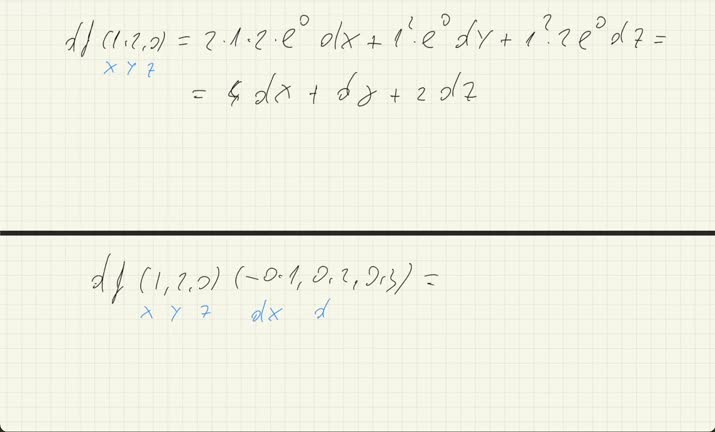 df (1,2,0) = 2·1·2·e⁰ dx + 1²·e⁰ dy + 1²·2e⁰ dz =
x y z
= 4 dx + dy + 2 dz
df (1,2,0) (-0.1, 0,2, 0,3) =
x y z dx d